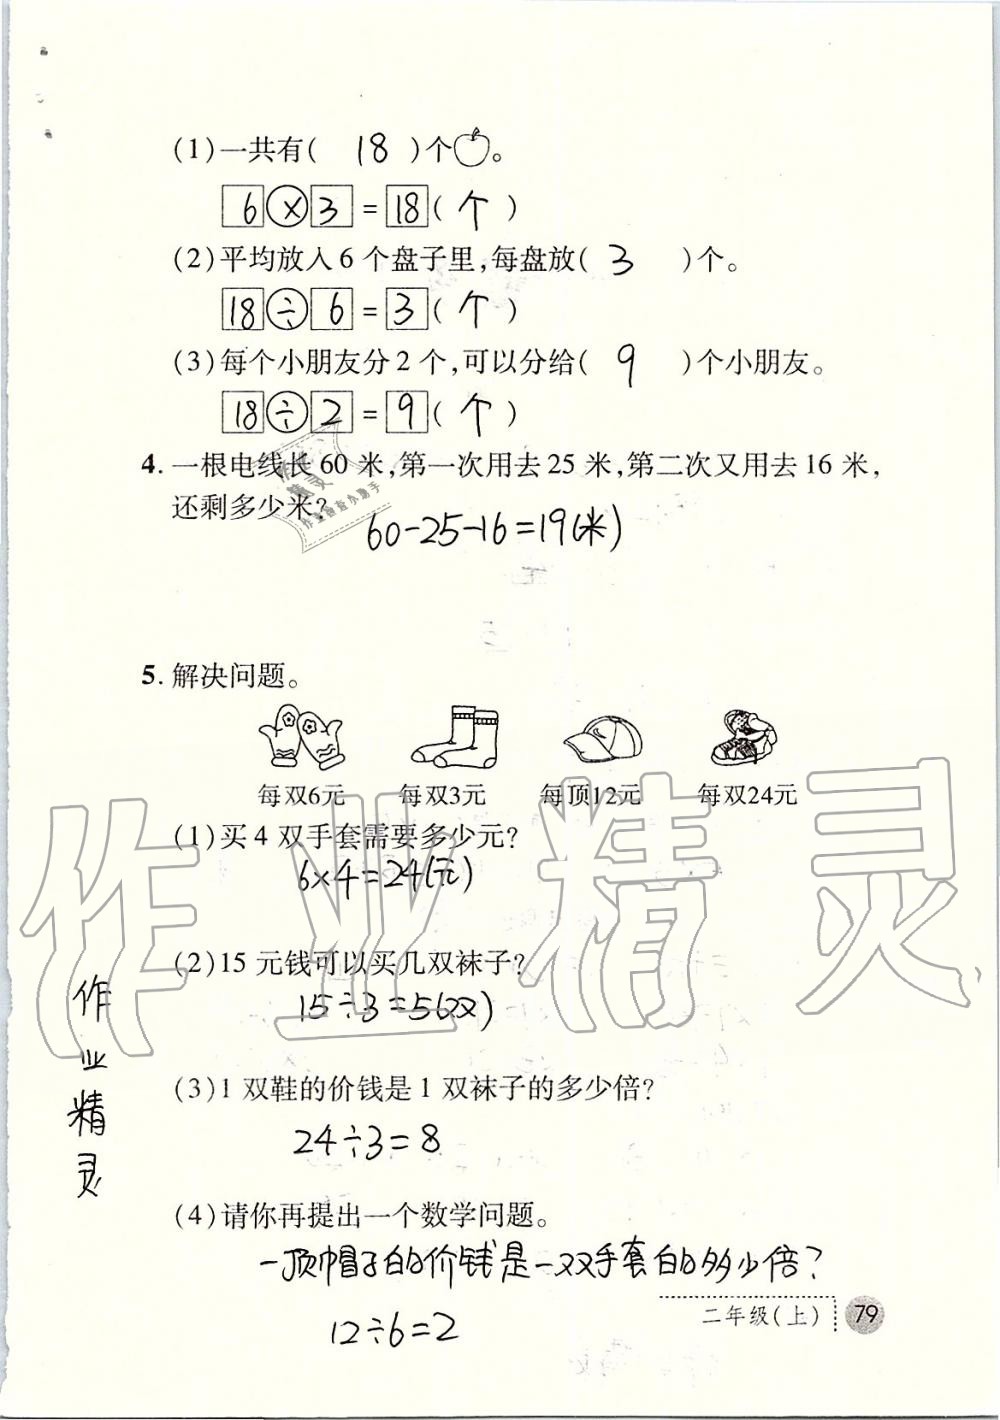 (1)一共有( 18 )个。
6×3=18(个)
(2)平均放入6个盘子里,每盘放( 3 )个。
18÷6=3(个)
(3)每个小朋友分2个,可以分给( 9 )个小朋友。
18÷2=9(个)
4. 一根电线长60米,第一次用去25米,第二次又用去16米,
还剩多少米?
60-25-16=19(米)
5. 解决问题。
每双6元 每双3元 每顶12元 每双24元
(1)买4双手套需要多少元?
6×4=24(元)
(2)15元钱可以买几双袜子?
15÷3=5(双)
(3)1双鞋的价钱是1双袜子的多少倍?
24÷3=8
(4)请你再提出一个数学问题。
一顶帽子的价钱是一双手套的多少倍?
12÷6=2
二年级(上) 79
作业精灵
作业精灵